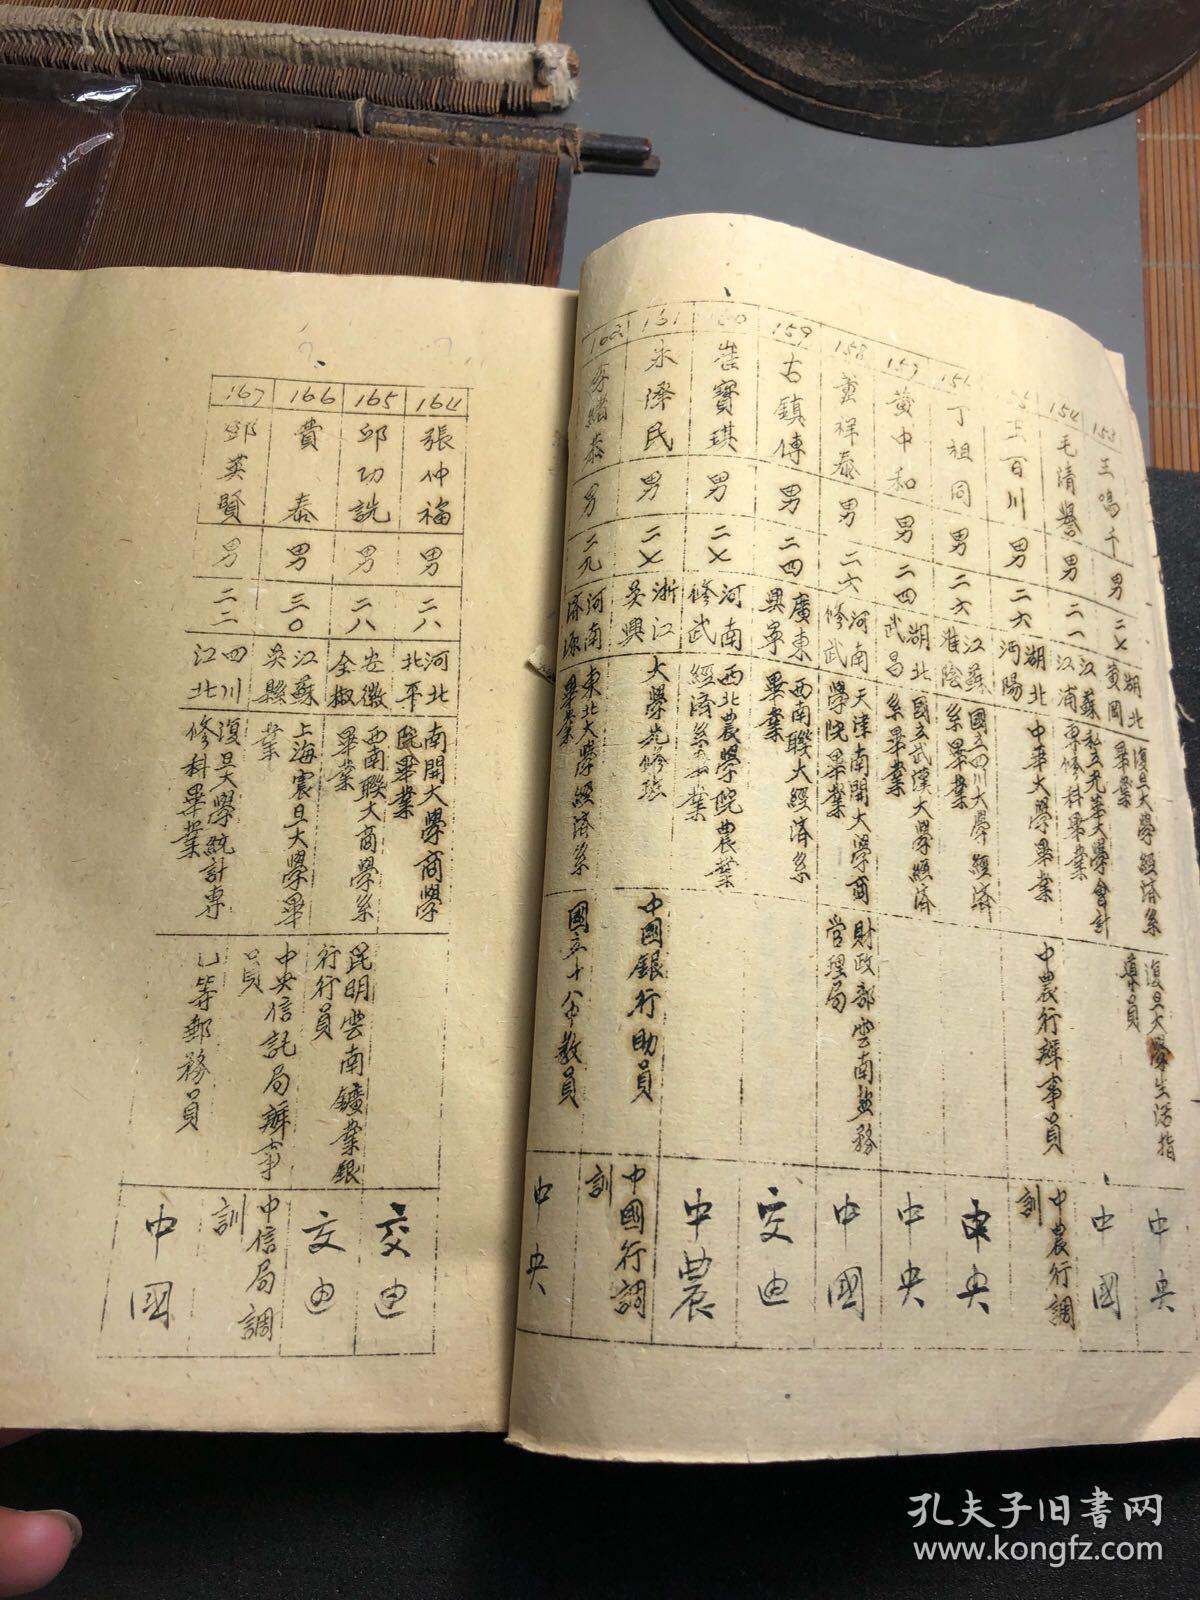 153 王鳴千 男 二七 湖北黃岡 復旦大學經済系畢業 復旦大學生活指導員 中央
154 毛清譽 男 二一 江蘇江浦 私立光華大學會計專修科畢業 中國
王百川 男 二六 湖北沔陽 中華大學畢業 中農行辦事員 中農行調訓
丁祖同 男 二六 江蘇淮陰 國立四川大學經済系畢業 中央
157 黃中和 男 二四 湖北武昌 國立武漢大學經済系畢業 中央
158 董祥泰 男 二六 河南修武 天津南開大學商學院畢業 財政部雲南盐務管理局 中國
159 古鎮傳 男 二四 廣東興寧 西南聯大經済系畢業 交通
160 崔寶琪 男 二七 河南修武 西北農學院農業經済系畢業 中農
161 朱澤民 男 二七 浙江吳興 大學先修班 中國銀行助員 中國行調訓
男 二九 河南済源 東北大學經済系畢業 國立十八中教員 中央
164 張仲福 男 二八 河北北平 南開大學商學院畢業 交通
165 邱功詵 男 二八 安徽全椒 西南聯大商學系畢業 昆明雲南鑛業銀行行員 交通
166 費泰 男 三〇 江蘇吳縣 上海震旦大學畢業 中央信託局辦事員 中信局調訓
167 鄧英賢 男 二二 四川江北 復旦大學統計專修科畢業 乙等郵務員 中國
孔夫子旧書网
www.kongfz.com